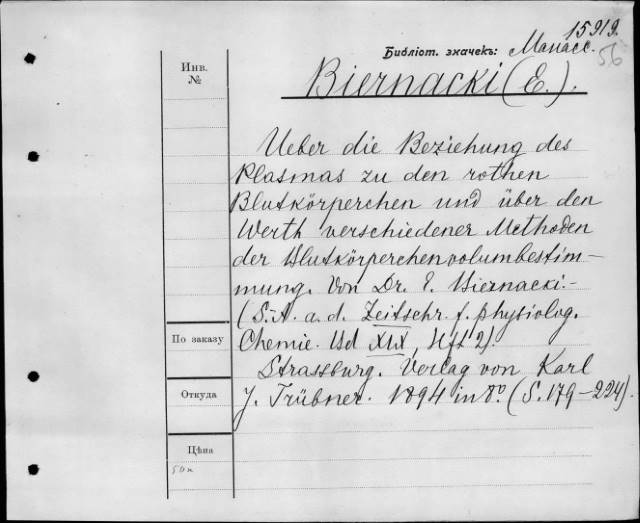 15919.
Библіот. значекъ: Манасс.
56
Инв.
№
Biernacki (E.).
Ueber die Beziehung des
Plasmas zu den rothen
Blutkörperchen und über den
Werth verschiedener Methoden
der Blutkörperchenvolumbestim-
mung. Von Dr. E. Biernacki.-
(S.-A. a. d. Zeitschr. f. physiolog.
По заказу
Chemie. Bd XIX, Hft 2).
Strassburg. Verlag von Karl
Откуда
J. Trübner. 1894 in 8º. (S. 179-224).
Цѣна
50к